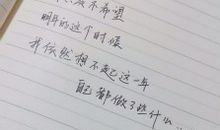 不希望
明年的这个时候
我依然想不起这一年
自己都做了些什么